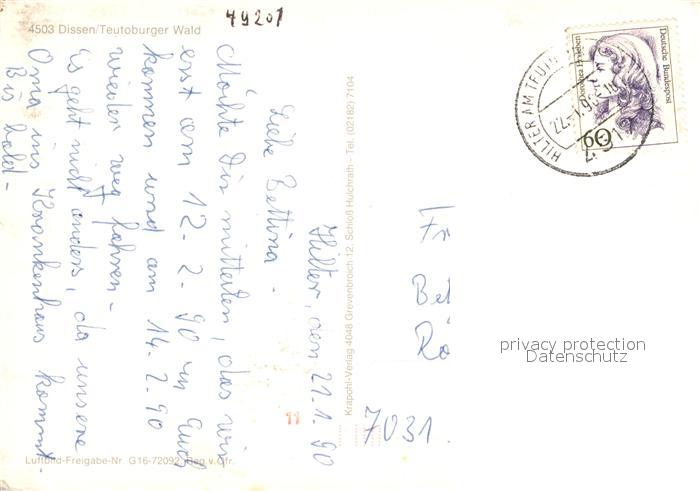 79201
4503 Dissen/Teutoburger Wald
Hilter, den 21.1.90
Liebe Bettina -
Möchte Dir mitteilen, das wir
erst am 12-2-90 zu Euch
kommen und am 14-2-90
wieder weg fahren -
Es geht nicht anders, da unsere
Oma ins Krankenhaus kommt -
Bis bald -
Luftbild-Freigabe-Nr. G16-72092, Reg.v.Ofr.
Krapohl-Verlag 4048 Grevenbroich 12, Schloß Hulchrath - Tel. (02182) 7104
11
Deutsche Bundespost
60
HILTER AM TEUT
22.-1.90
Fr
Bet
Rö
7031
privacy protection
Datenschutz